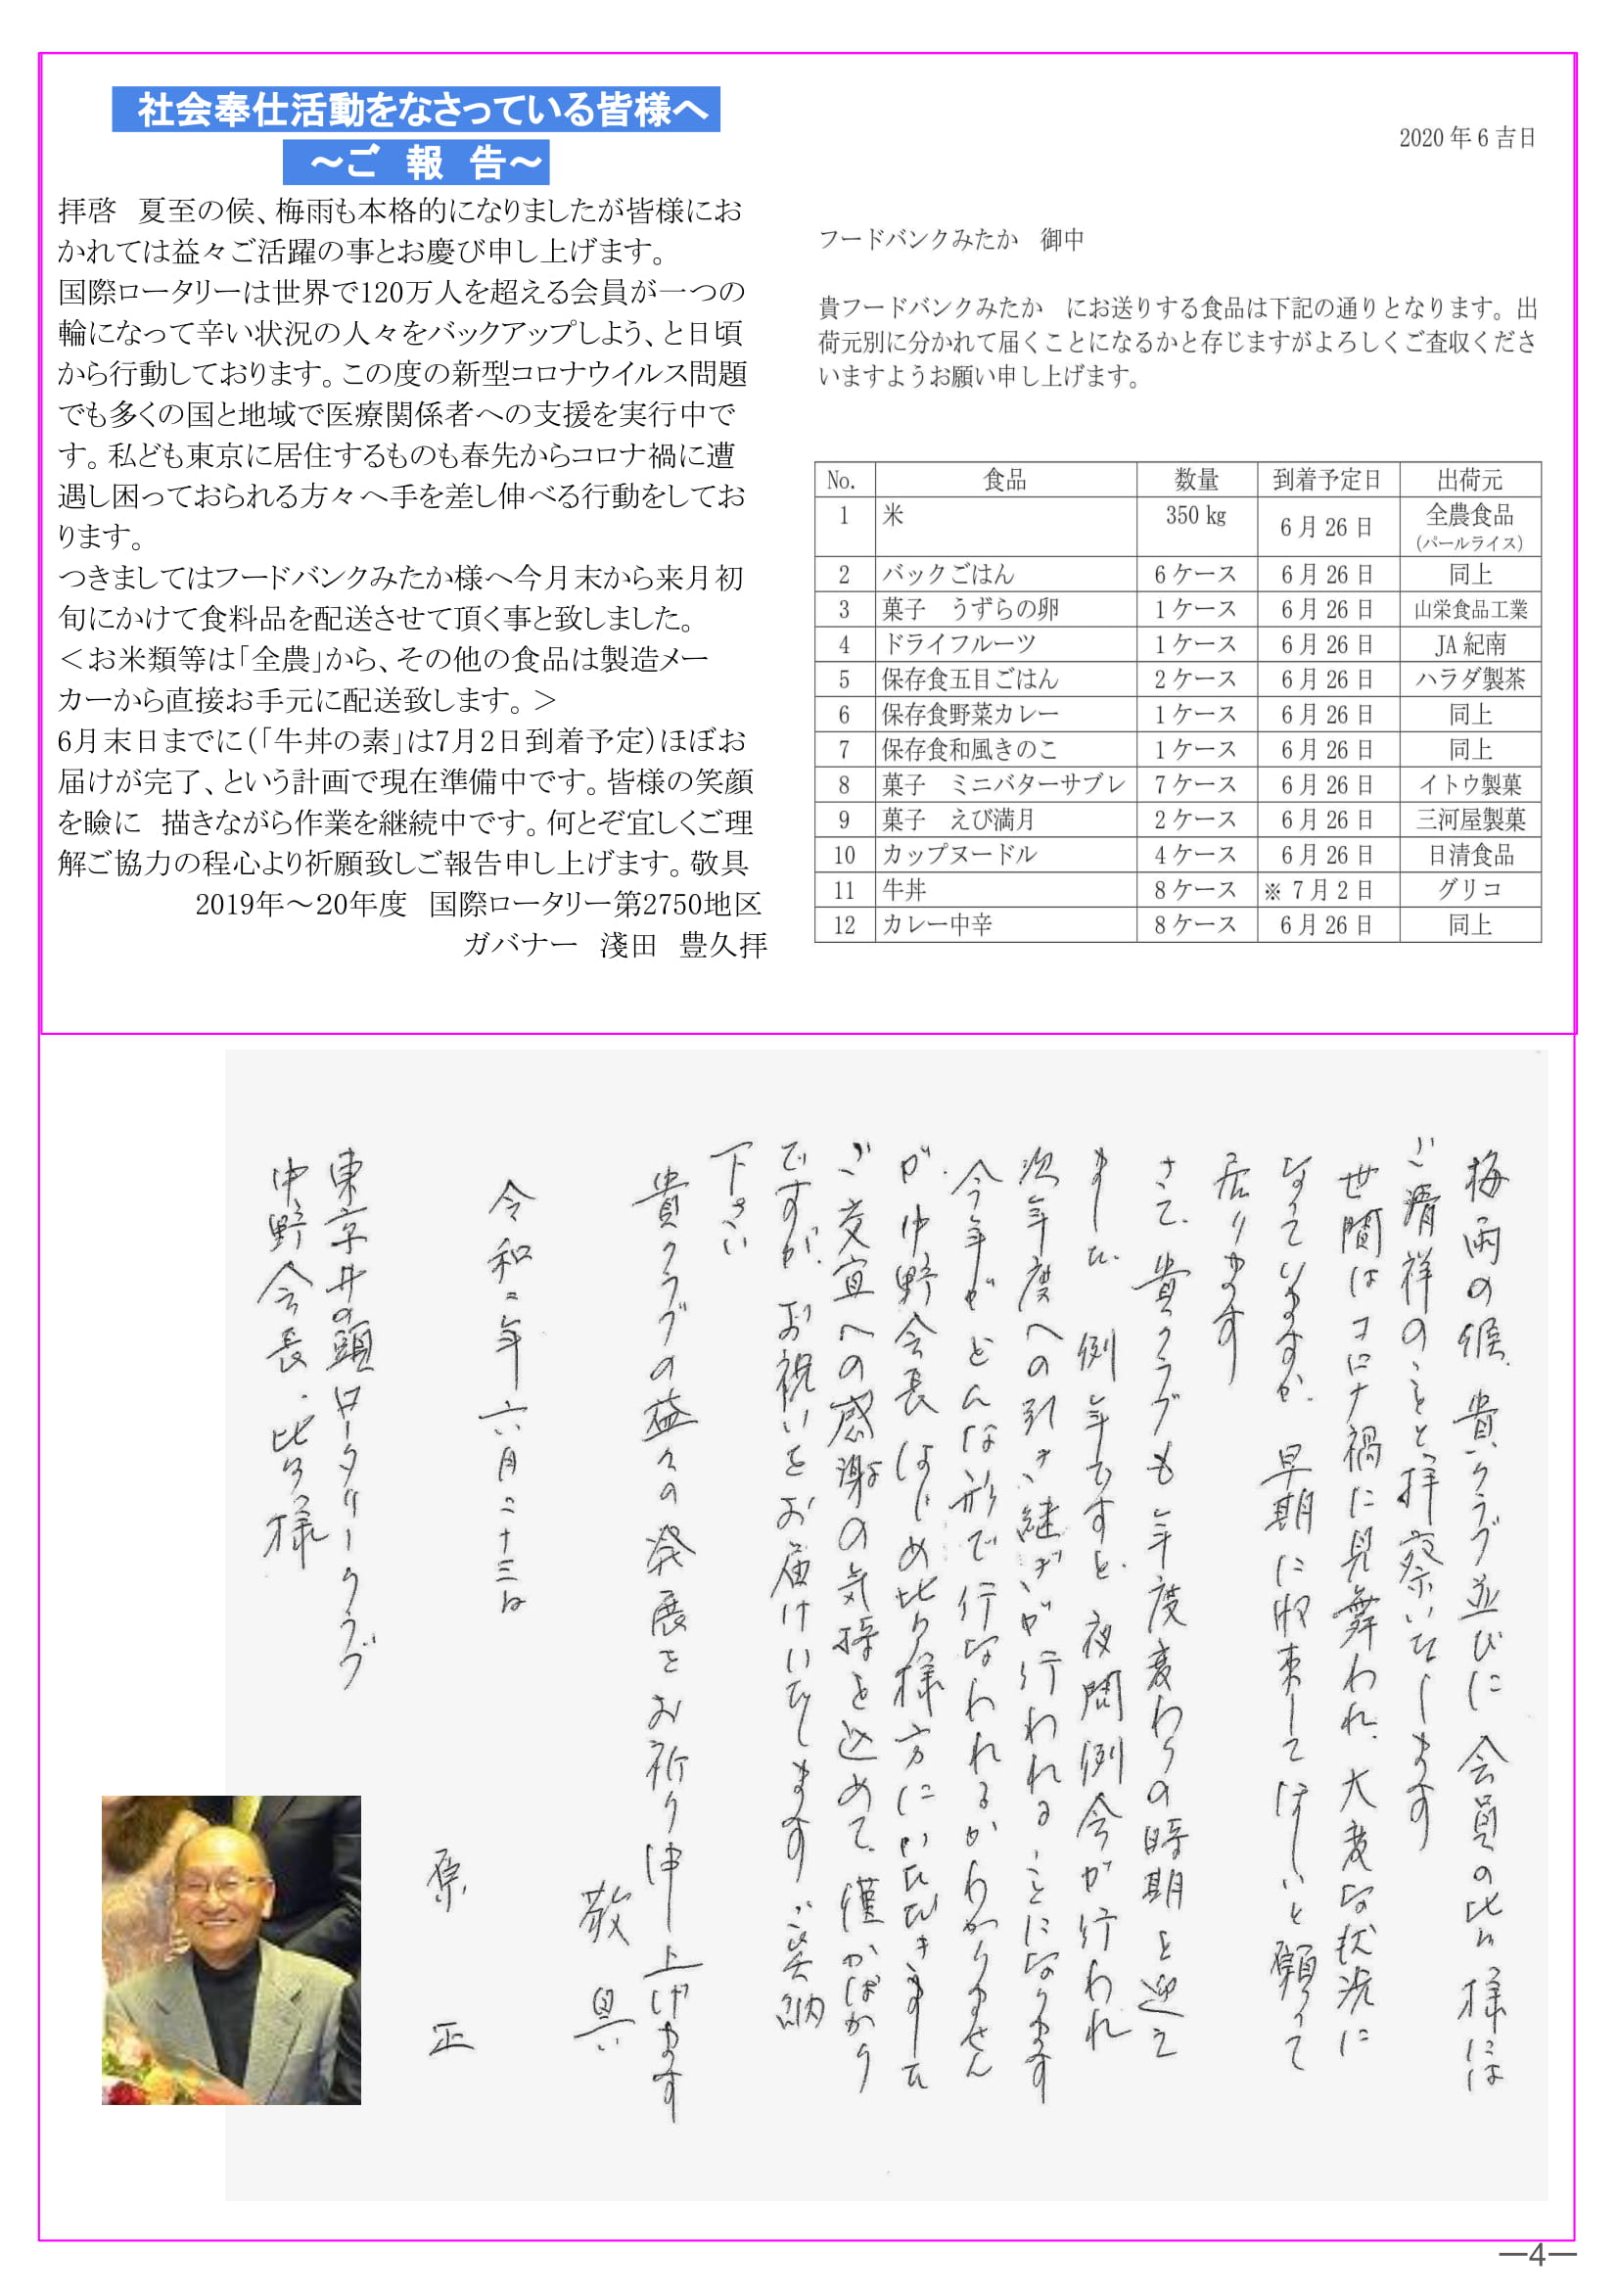 社会奉仕活動をなさっている皆様へ
～ご 報 告～
拝啓 夏至の候、梅雨も本格的になりましたが皆様にお
かれては益々ご活躍の事とお慶び申し上げます。
国際ロータリーは世界で120万人を超える会員が一つの
輪になって辛い状況の人々をバックアップしよう、と日頃
から行動しております。この度の新型コロナウイルス問題
でも多くの国と地域で医療関係者への支援を実行中で
す。私ども東京に居住するものも春先からコロナ禍に遭
遇し困っておられる方々へ手を差し伸べる行動をしてお
ります。
つきましてはフードバンクみたか様へ今月末から来月初
旬にかけて食料品を配送させて頂く事と致しました。
＜お米類等は「全農」から、その他の食品は製造メー
カーから直接お手元に配送致します。＞
6月末日までに（「牛丼の素」は7月2日到着予定）ほぼお
届けが完了、という計画で現在準備中です。皆様の笑顔
を瞼に 描きながら作業を継続中です。何とぞ宜しくご理
解ご協力の程心より祈願致しご報告申し上げます。敬具
2019年～20年度 国際ロータリー第2750地区
ガバナー 淺田 豊久拝
2020 年 6 吉日
フードバンクみたか 御中
貴フードバンクみたか にお送りする食品は下記の通りとなります。出
荷元別に分かれて届くことになるかと存じますがよろしくご査収くださ
いますようお願い申し上げます。
No. 食品 数量 到着予定日 出荷元
1 米 350 kg 6 月 26 日 全農食品
(パールライス)
2 パックごはん 6 ケース 6 月 26 日 同上
3 菓子 うずらの卵 1 ケース 6 月 26 日 山栄食品工業
4 ドライフルーツ 1 ケース 6 月 26 日 JA 紀南
5 保存食五目ごはん 2 ケース 6 月 26 日 ハラダ製茶
6 保存食野菜カレー 1 ケース 6 月 26 日 同上
7 保存食和風きのこ 1 ケース 6 月 26 日 同上
8 菓子 ミニバターサブレ 7 ケース 6 月 26 日 イトウ製菓
9 菓子 えび満月 2 ケース 6 月 26 日 三河屋製菓
10 カップヌードル 4 ケース 6 月 26 日 日清食品
11 牛丼 8 ケース ※ 7 月 2 日 グリコ
12 カレー中辛 8 ケース 6 月 26 日 同上
梅雨の候、貴クラブ並びに 会員の皆々様には
ご清祥のことと拝察いたします
世間はコロナ禍に見舞われ、大変な状況に
なっていますが、早期に収束してほしいと願って
居ります
さて、貴クラブも年度変わりの時期を迎え
ました 例年ですと、夜間例会が行われ
次年度への引き継ぎが行われることになります
今年がどんな形で行なわれるかわかりません
が、中野会長はじめ皆々様方にいただきました
ご交宜への感謝の気持を込めて、僅かばかり
ですが、お祝いをお届けいたします ご笑納
下さい
貴クラブの益々の発展をお祈り申し上げます
敬具
令和二年六月二十三日
原 正
東京井の頭ロータリークラブ
中野会長、皆々様
—4—